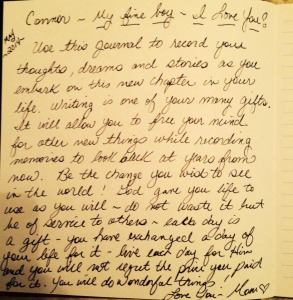 Connor - My fine boy - I Love You!
Use this journal to record your
thoughts, dreams and stories as you
embark on this new chapter in your
life. Writing is one of your many gifts.
It will allow you to free your mind
for other new things while recording
memories to look back at years from
now. Be the change you wish to see
in the world! God gave you life to
use as you will - do not waste it but
be of service to others - each day is
a gift - you have exchanged a day of
your life for it - live each day for Him
and you will not regret the price you paid
for it. You will do wonderful things.
Love You - Mom ♡